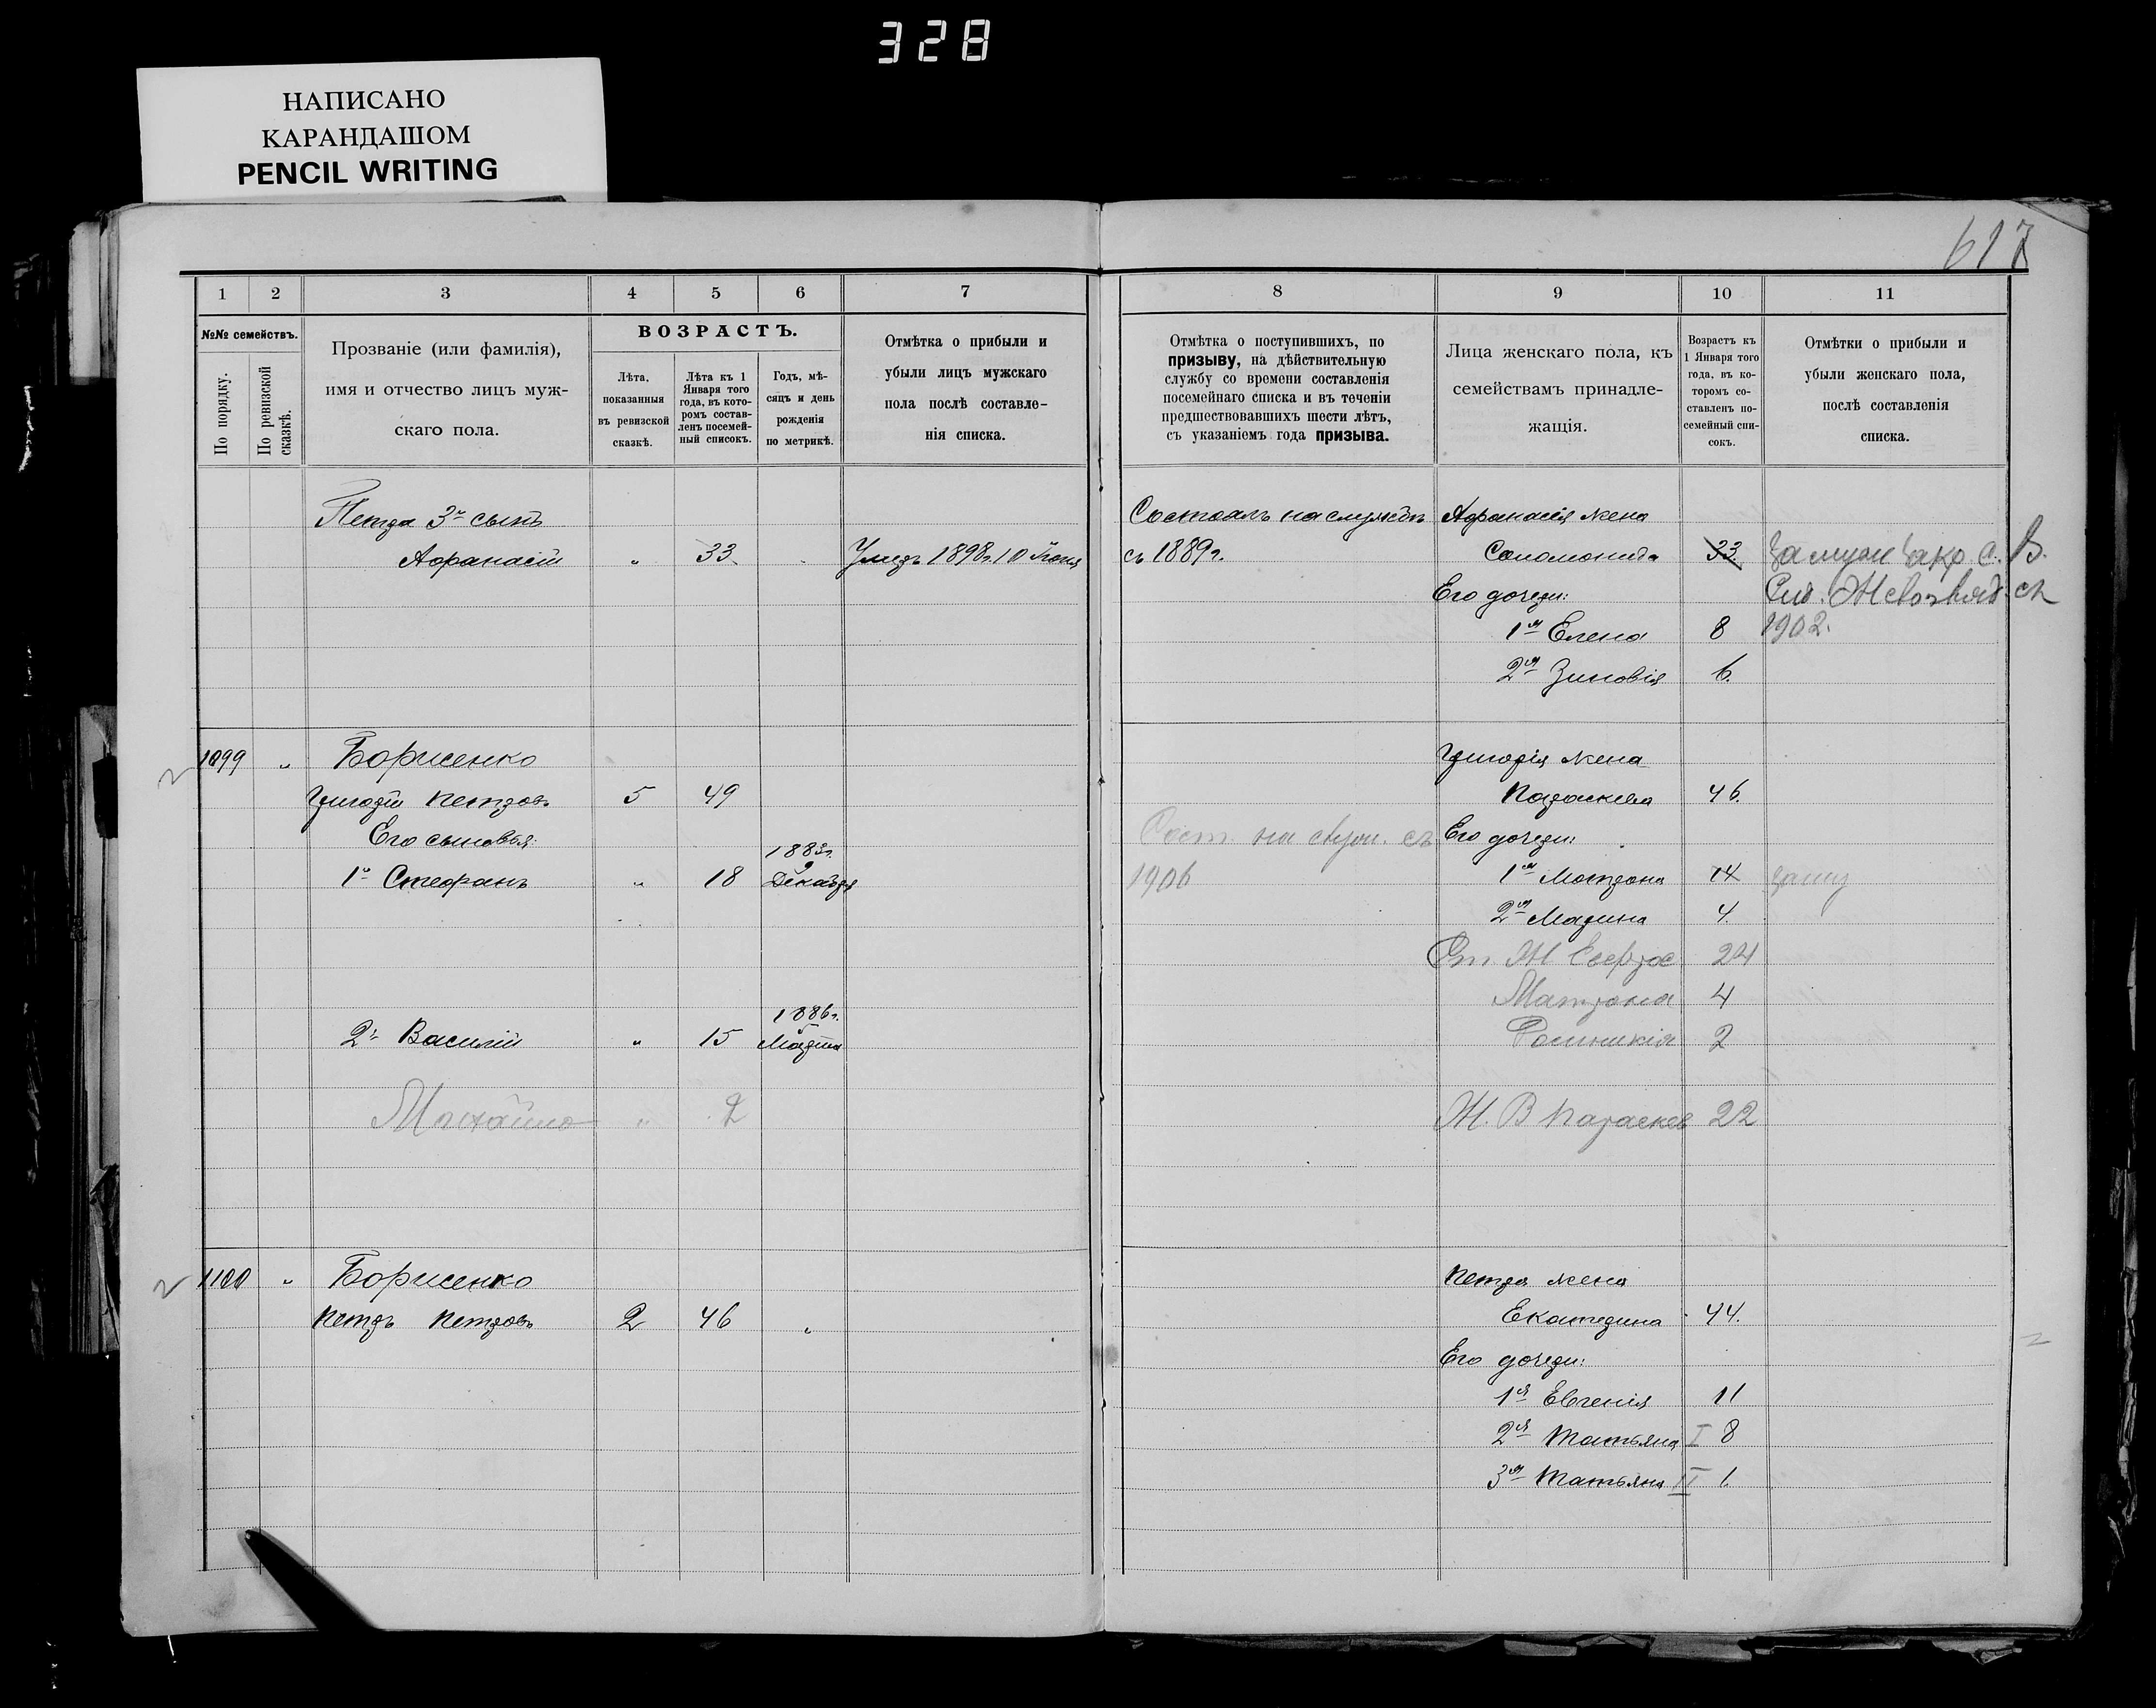 328
НАПИСАНО
КАРАНДАШОМ
PENCIL WRITING
617
1
2
3
4
5
6
7
№№ семействъ.
По порядку.
По ревизской сказкѣ.
Прозваніе (или фамилія),
имя и отчество лицъ муж-
скаго пола.
ВОЗРАСТЪ.
Лѣта,
показанныя
въ ревизской
сказкѣ.
Лѣта къ 1
Января того
года, въ кото-
ромъ состав-
ленъ посемей-
ный список.
Годъ, мѣ-
сяцъ и день
рожденія
по метрикѣ.
Отмѣтка о прибыли и
убыли лицъ мужскаго
пола послѣ составле-
нія списка.
8
9
10
11
Отмѣтка о поступившихъ, по
призыву, на дѣйствительную
службу со времени составленія
посемейнаго списка и въ теченіи
предшествовавшихъ шести лѣтъ,
съ указаніемъ года призыва.
Лица женскаго пола, къ
семействамъ принадле-
жащія.
Возрастъ къ
1 Января того
года, въ ко-
торомъ со-
ставленъ по-
семейный спи-
сокъ.
Отмѣтки о прибыли и
убыли женскаго пола,
послѣ составленія
списка.
Петра 3й сынъ
Афанасій " 33 Умеръ 1898 г. 10 Іюня
1099 " Борисенко
Григорій Петровъ 5 49
Его сыновья:
1й Стефанъ " 18 1883 г. 9 Декабря
2й Василій " 15 1886 г. 5 Марта
Михайло " 2
1100 " Борисенко
Петръ Петровъ 2 46 "
Состоялъ на службѣ Афанасія жена
съ 1889 г. Соломонида 33 замуж С. В.
Его дочери:
1я Елена 8 1902.
2я Зиновія 6.
Григорія жена
Параскева 46.
Сост. на служ. съ Его дочери:
1906 1я Мотрона 14 замуж
2я Марина 4.
Ст. Ж Евфрос 24
Матрона 4
2
Ж. В Параскев 22
Петра жена
Екатерина 44.
Его дочери:
1я Евгенія 11
2я Татьяна I 8
3я Татьяна II 1.